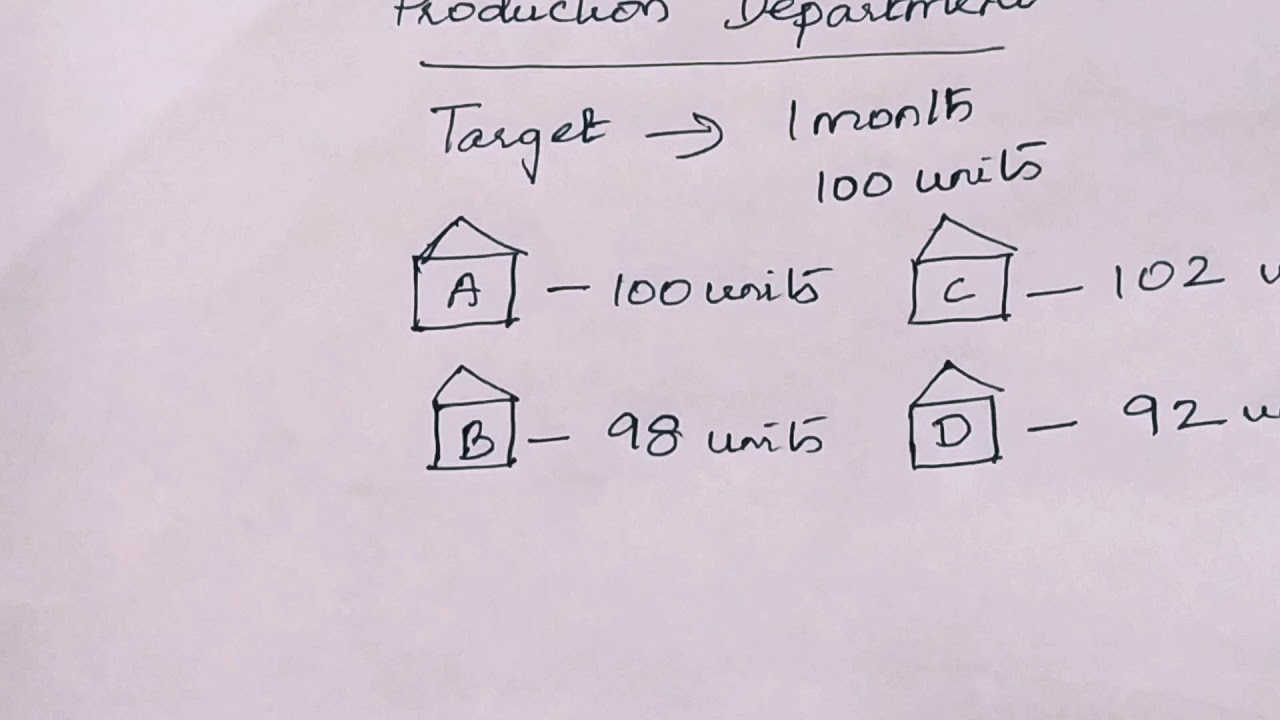 Production Department
Target → 1 month
100 units
A – 100 units
C – 102
B – 98 units
D – 92